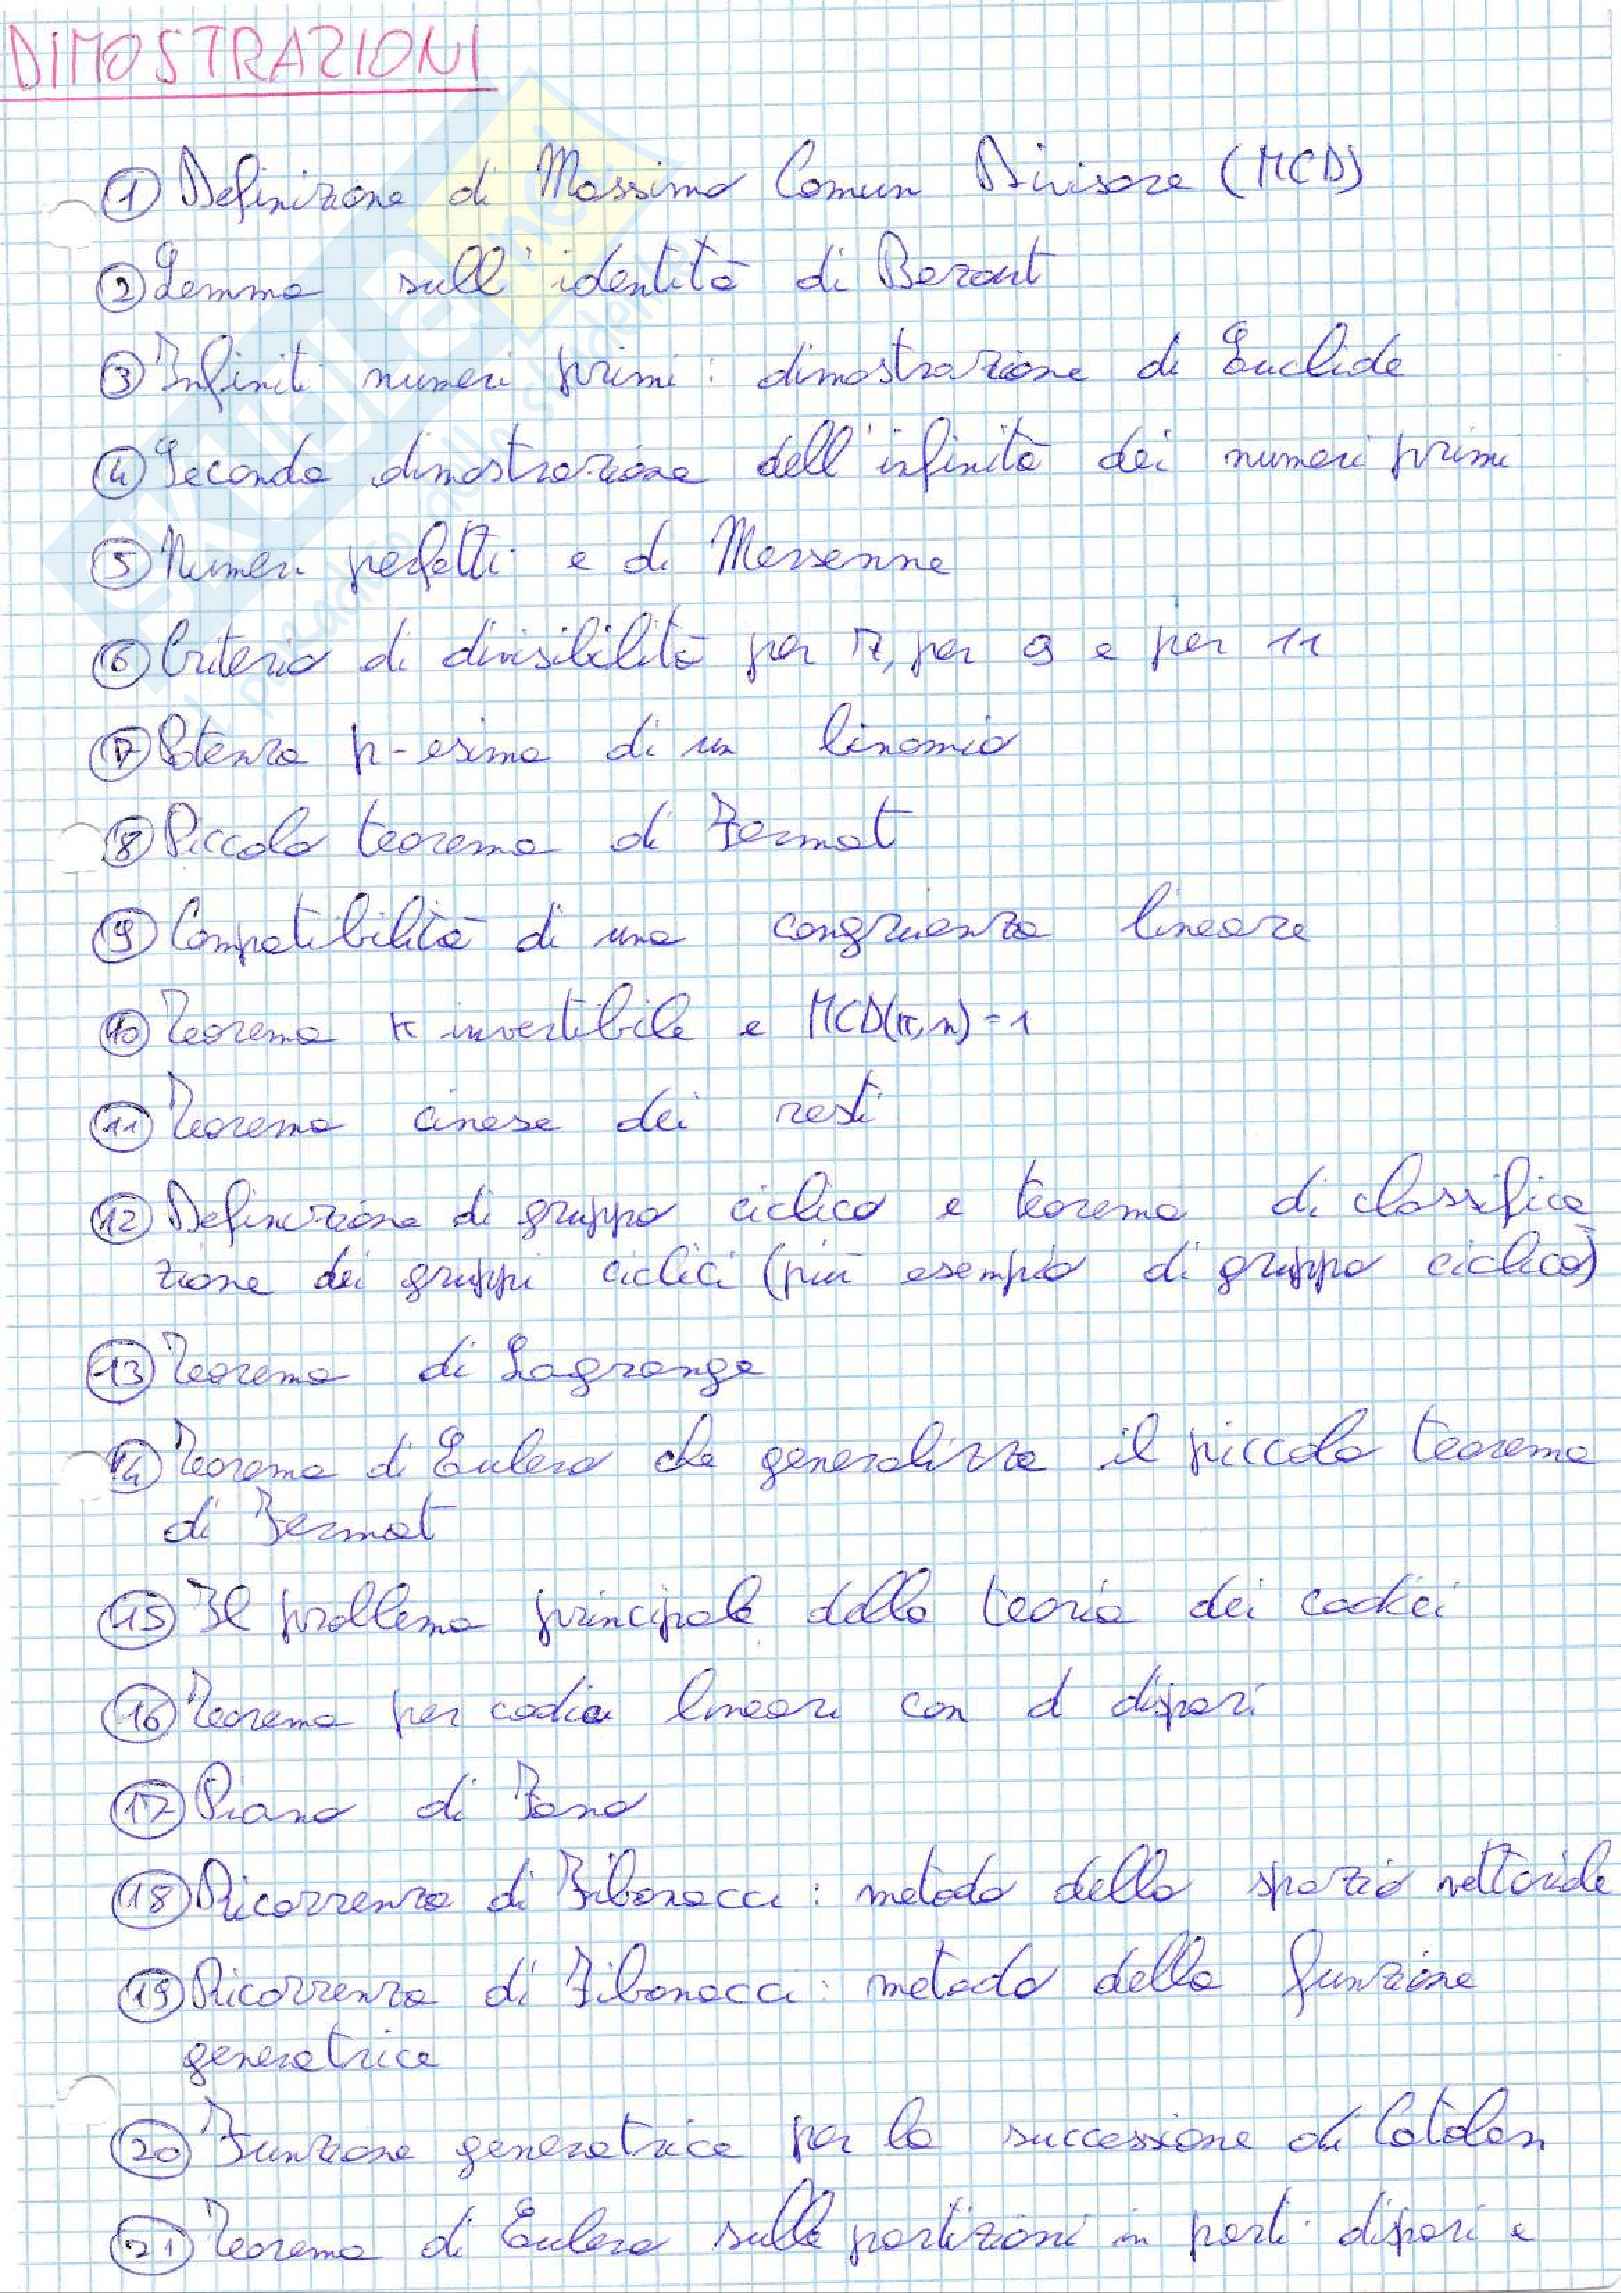 DIMOSTRAZIONI
① Definizione di Massimo Comun Divisore (MCD)
② Lemma sull'identità di Bezout
③ Infiniti numeri primi: dimostrazione di Euclide
④ Seconda dimostrazione dell'infinità dei numeri primi
⑤ Numeri perfetti e di Mersenne
⑥ Criterio di divisibilità per 7, per 9 e per 11
⑦ Potenza p-esima di un binomio
⑧ Piccolo teorema di Fermat
⑨ Compatibilità di una congruenza lineare
⑩ Teorema k invertibile e MCD(k,n)=1
⑪ Teorema cinese dei resti
⑫ Definizione di gruppo ciclico e teorema di classifica
zione dei gruppi ciclici (più esempio di gruppo ciclico)
⑬ Teorema di Lagrange
⑭ Teorema di Eulero che generalizza il piccolo teorema
di Fermat
⑮ Il problema principale della teoria dei codici
⑯ Teorema per codici lineari con d dispari
⑰ Piano di Fano
⑱ Ricorrenza di Fibonacci: metodo dello spazio vettoriale
⑲ Ricorrenza di Fibonacci: metodo della funzione
generatrice
⑳ Funzione generatrice per la successione di Catalan
㉑ Teorema di Eulero sulle partizioni in parti dispari e